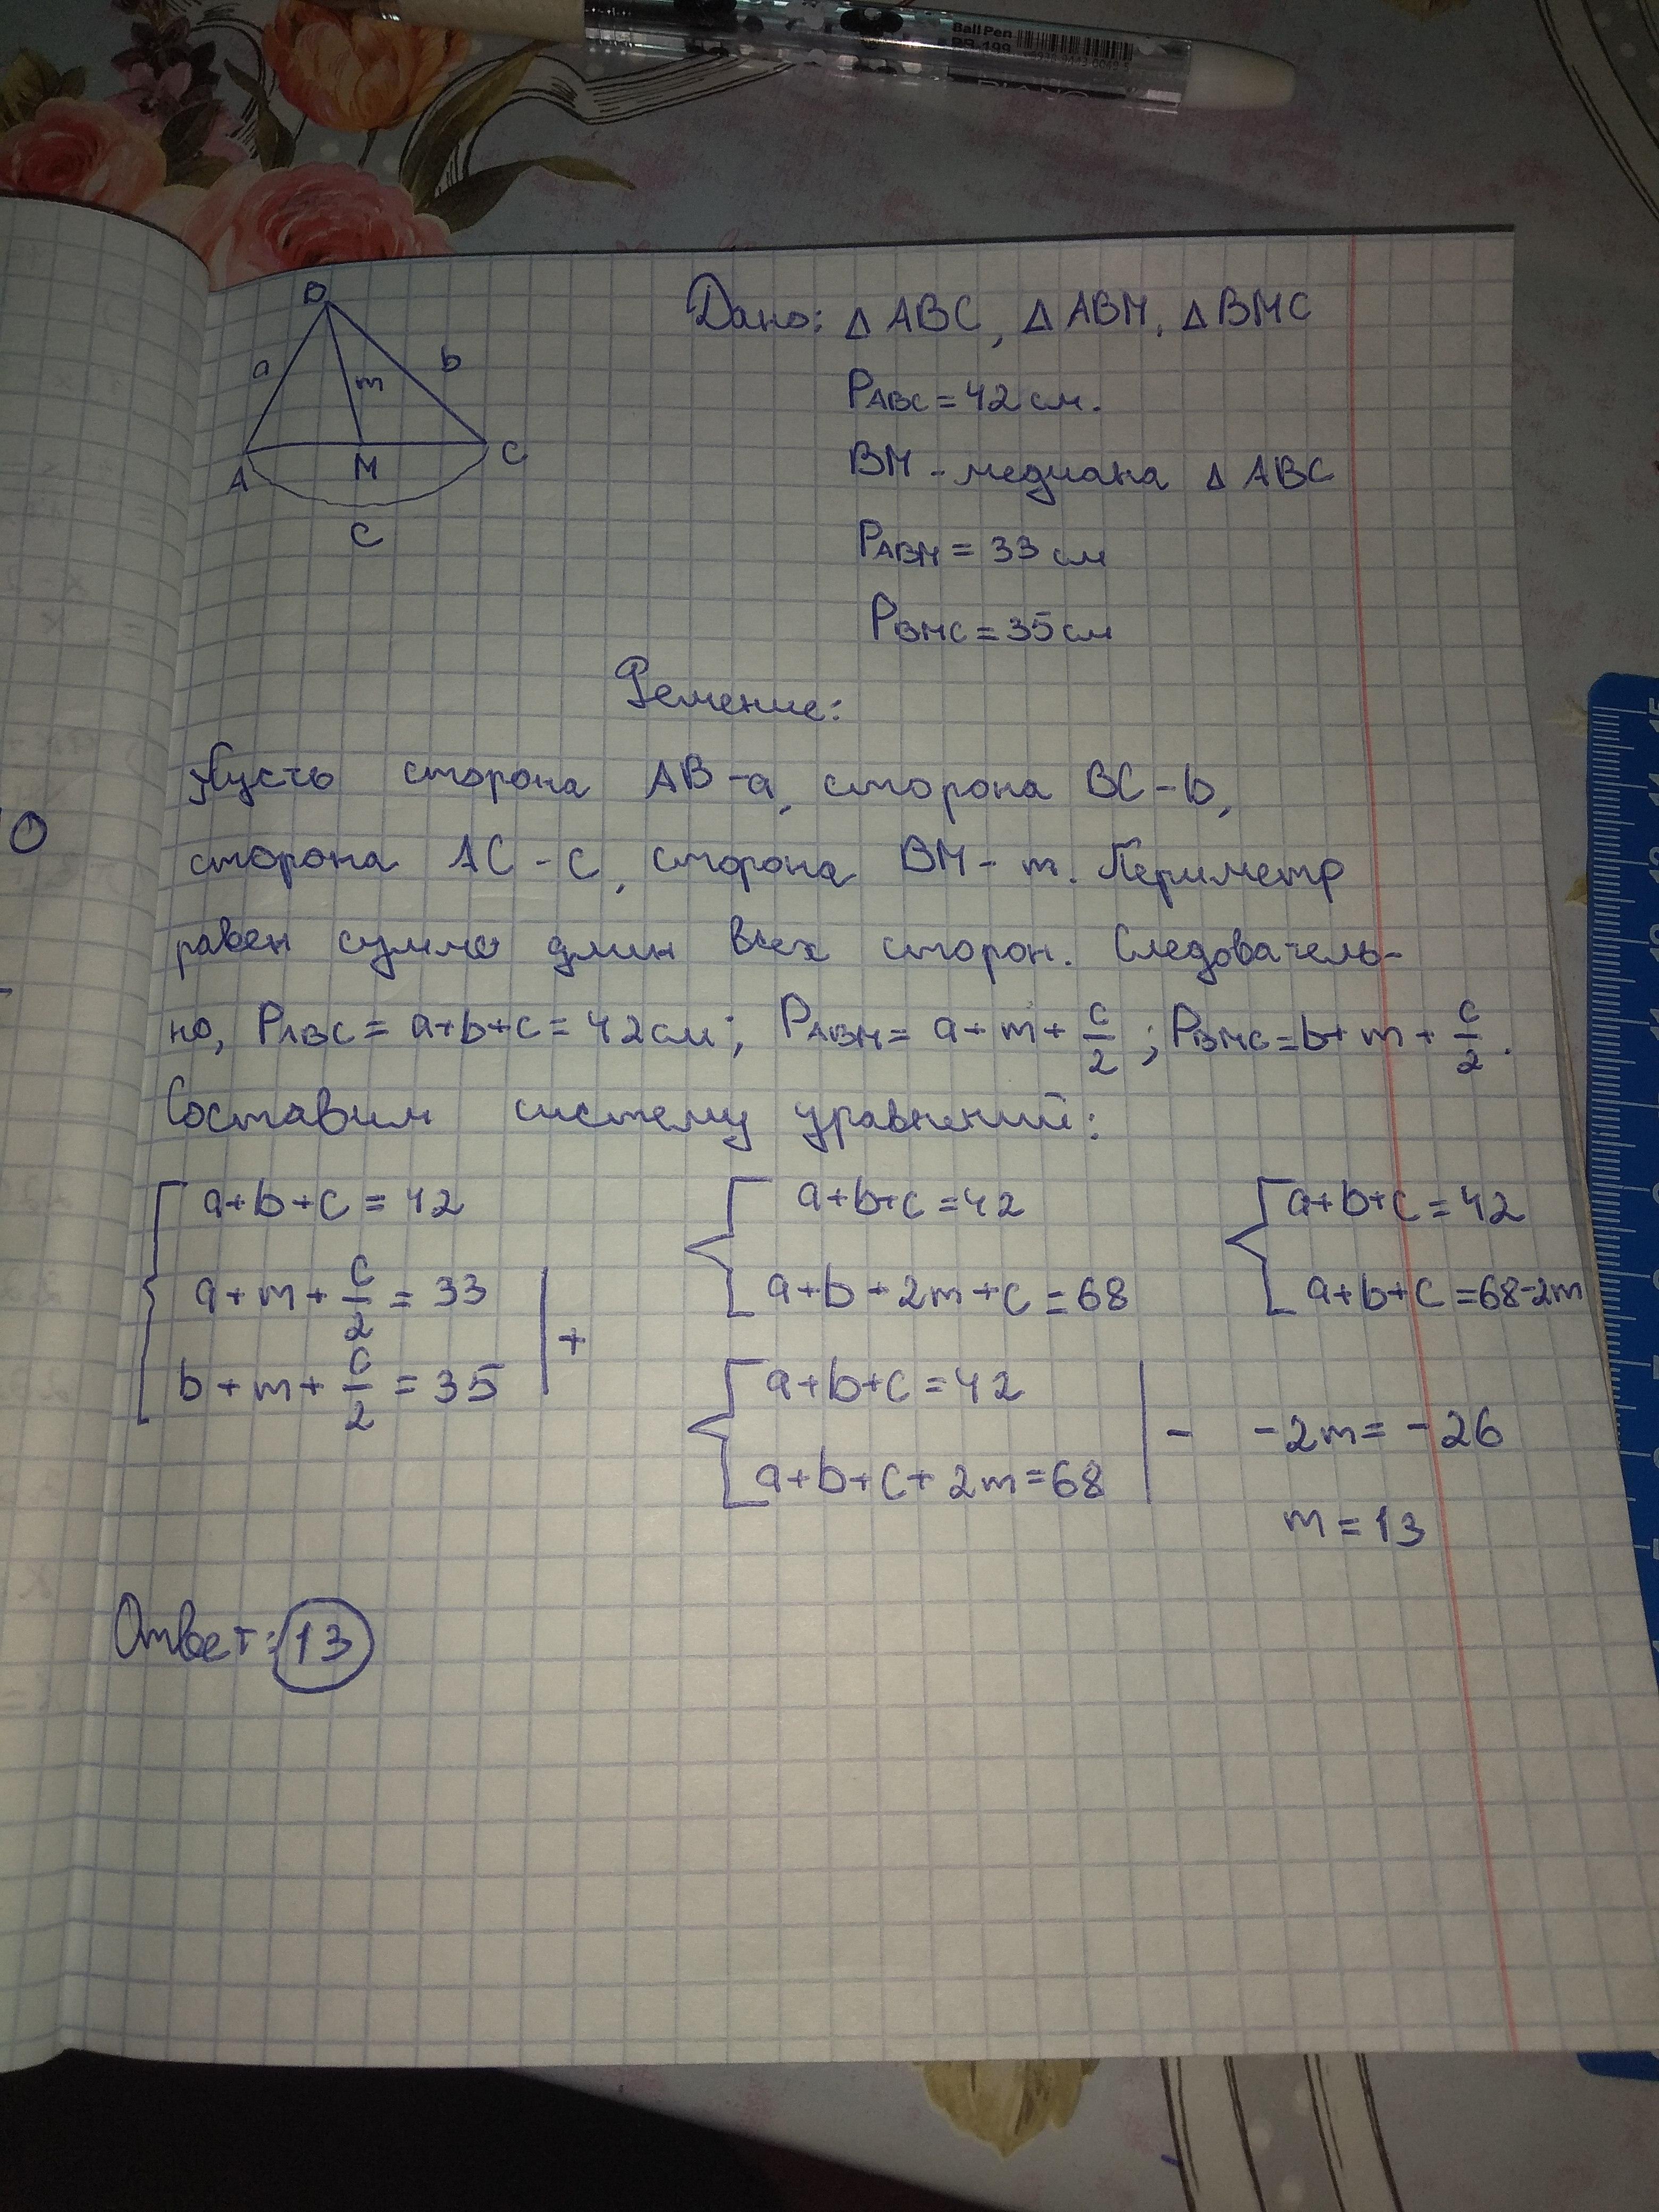 Ball Pen
PIANO
B
a
b
m
A
M
C
C
Дано: △ ABC, △ ABM, △ BMC
PABC = 42 см.
BM - медиана △ ABC
PABM = 33 см
PBMC = 35 см
Решение:
Пусть сторона AB - a, сторона BC - b,
сторона AC - c, сторона BM - m. Периметр
равен сумме длин всех сторон. Следователь-
но, PABC = a+b+c = 42 см; PABM = a + m + c/2; PBMC = b + m + c/2.
Составим систему уравнений:
a+b+c = 42
a + m + c/2 = 33
b + m + c/2 = 35
+
a+b+c = 42
a+b+2m+c = 68
a+b+c = 42
a+b+c = 68-2m
a+b+c = 42
a+b+c+2m = 68
- -2m = -26
m = 13
Ответ: 13